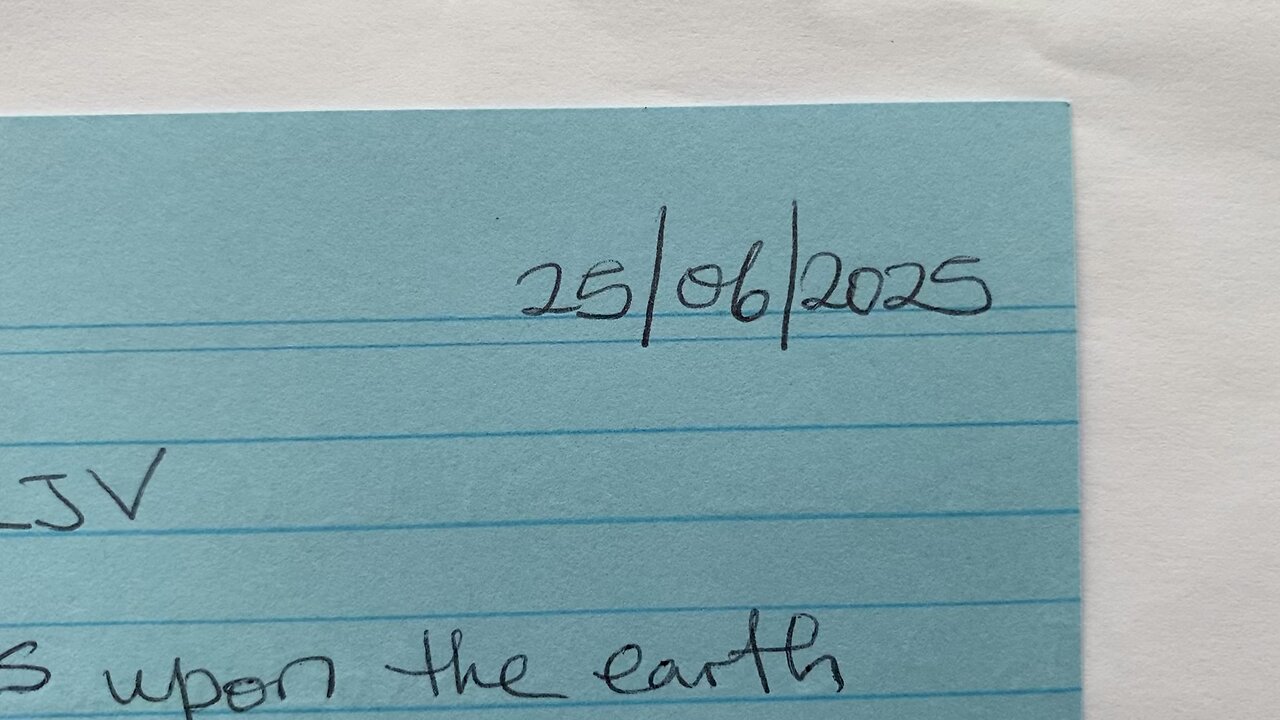 25/06/2025
JV
upon the earth